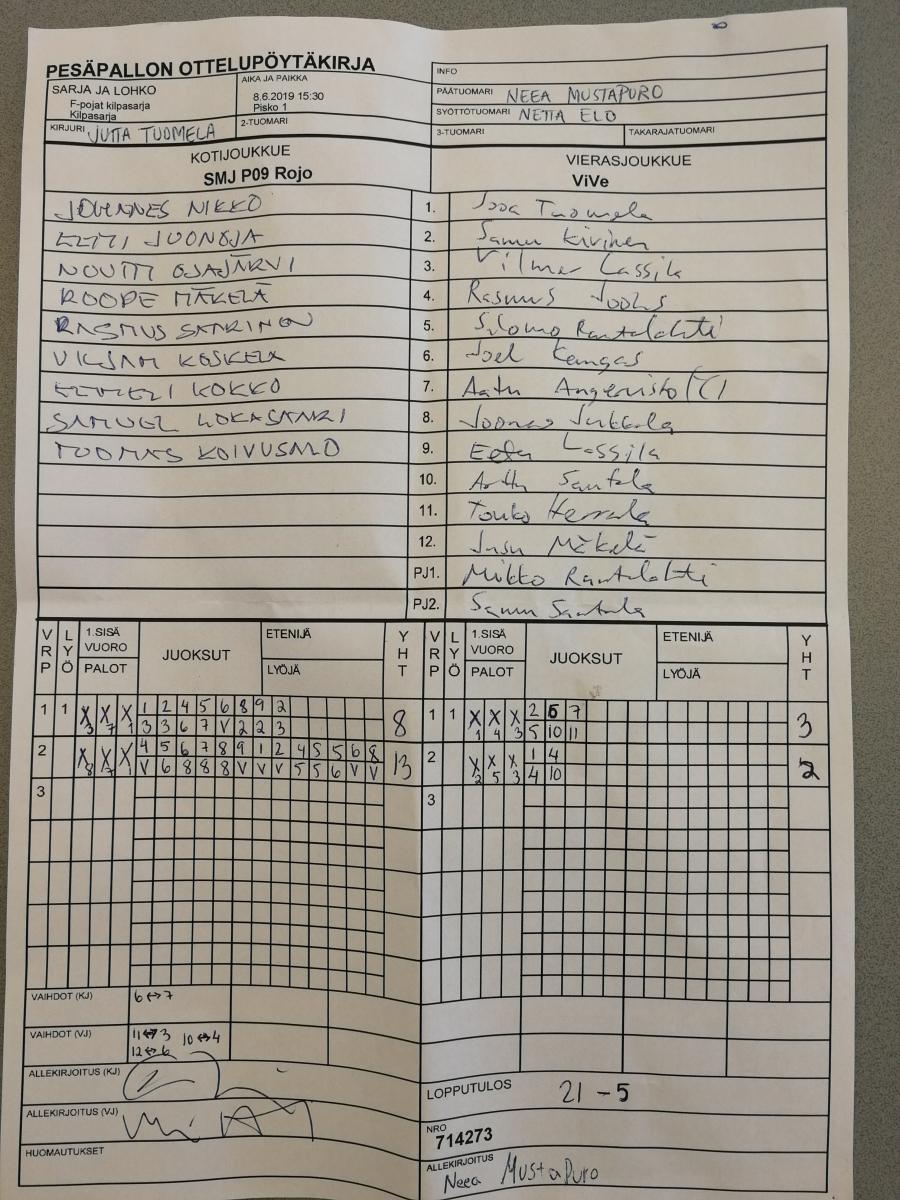 PESÄPALLON OTTELUPÖYTÄKIRJA
SARJA JA LOHKO
F-pojat kilpasarja
Kilpasarja
AIKA JA PAIKKA
8.6.2019 15:30
Pisko 1
KIRJURI JUTTA TUOMELA
2-TUOMARI
INFO
PÄÄTUOMARI NEEA MUSTAPURO
SYÖTTÖTUOMARI NETTA ELO
3-TUOMARI
TAKARAJATUOMARI
KOTIJOUKKUE
SMJ P09 Rojo
VIERASJOUKKUE
ViVe
JOHANNES NIKKO 1. Tuomela
2. Samu Kivinen
NOUTTI OJAJÄRVI 3. Vilmer Lassila
ROOPE MÄKELÄ 4. Rasmus
RASMUS 5. Rantalahti
KOSKELA 6. Joel Kangas
KOKKO 7. Aatu Angervisto (C)
SAMUEL 8. Joonas
TUOMAS 9. Lassila
10. Santala
11. Touko
12. Mäkelä
PJ1. Mikko Rantalahti
PJ2. Samu Santala
VRP LYÖ 1.SISÄ VUORO PALOT JUOKSUT ETENIJÄ LYÖJÄ YHT
VRP LYÖ 1.SISÄ VUORO PALOT JUOKSUT ETENIJÄ LYÖJÄ YHT
1 1 X X X 1 2 4 5 6 8 9 2
3 7 1 3 3 6 7 V 2 2 3 8
1 1 X X X 2 6 7
1 4 3 5 10 11 3
2 X X X 4 5 6 7 8 9 1 2 4 5 5 6 8
8 7 1 V 6 8 8 8 V V V 5 5 6 V V 13
2 X X X 1 4
2 5 3 4 10 2
3
3
VAIHDOT (KJ) 6↔7
VAIHDOT (VJ) 11↔3 10↔4
12↔6
ALLEKIRJOITUS (KJ)
ALLEKIRJOITUS (VJ)
HUOMAUTUKSET
LOPPUTULOS 21 - 5
NRO
714273
ALLEKIRJOITUS
Neea MustaPuro